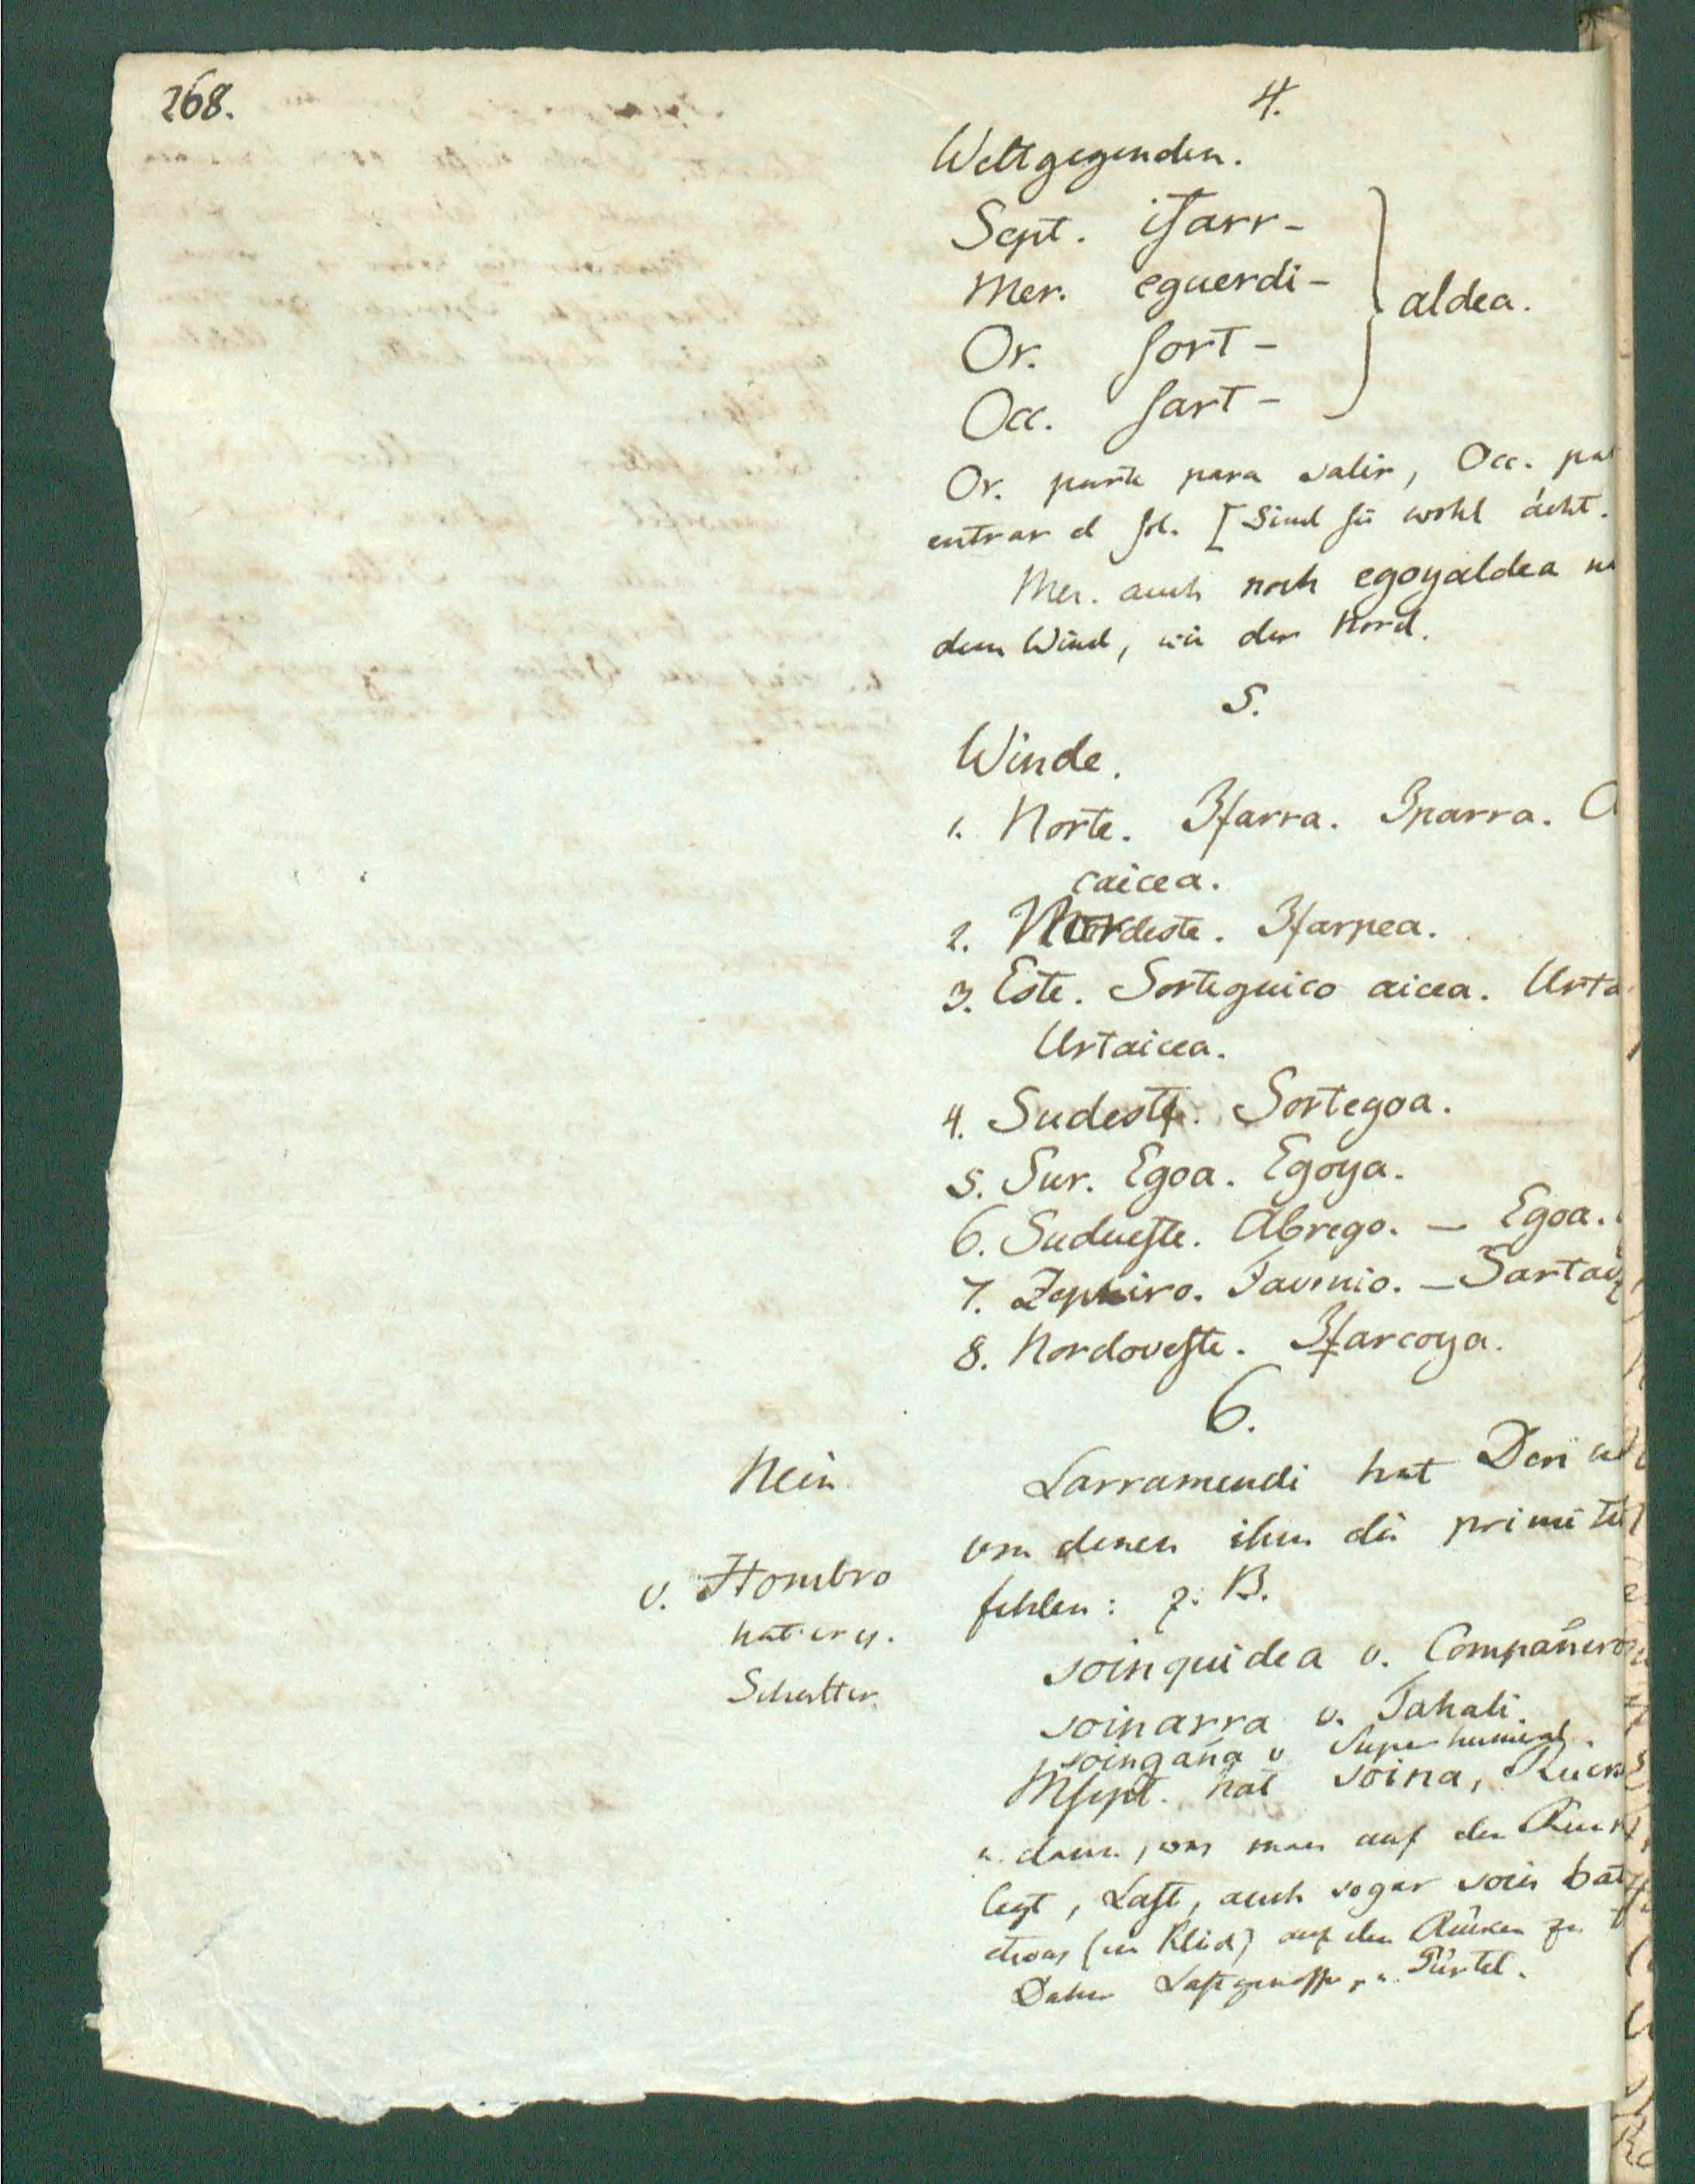 268.
4.
Weltgegenden.
Sept. ifarr-
Mer. eguerdi-
Or. sort-
Occ. sart-
aldea.
Or. parte para salir, Occ. pa
entrar el sol. [Sind sie wohl ächt.
Mer. auch noch egoyaldea
dem Wind, wie der Nord.
5.
Winde.
1. Norte. Ifarra. Iparra.
caicea.
2. Nordeste. Ifarpea.
3. Este. Sorteguico aicea. Urta
Urtaicea.
4. Sudeste. Sortegoa.
5. Sur. Egoa. Egoya.
6. Sudueste. Abrego. – Egoa.
7. Zephiro. Favonio. – Sartai
8. Nordoveste. Ifarcoya.
6.
Nein
v. Hombro
hat er es.
Schulter.
Larramendi hat Deri
von denen ihm die primiti
fehlen: z. B.
soinquidea v. Compañero
soinarra v. Tahali.
soingaña v Superhumeral.
Mscpt. hat soina, Rück
u. dann, was man auf den Rück
legt, Last, auch sogar soin bat
etwas (ein Kleid) auf den Rücken zu
Daher Lastgenosse, u. Gürtel.